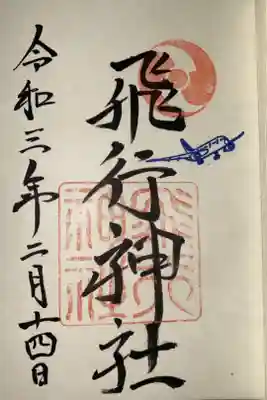 飛行神社
令和三年二月十四日
飛行
神社